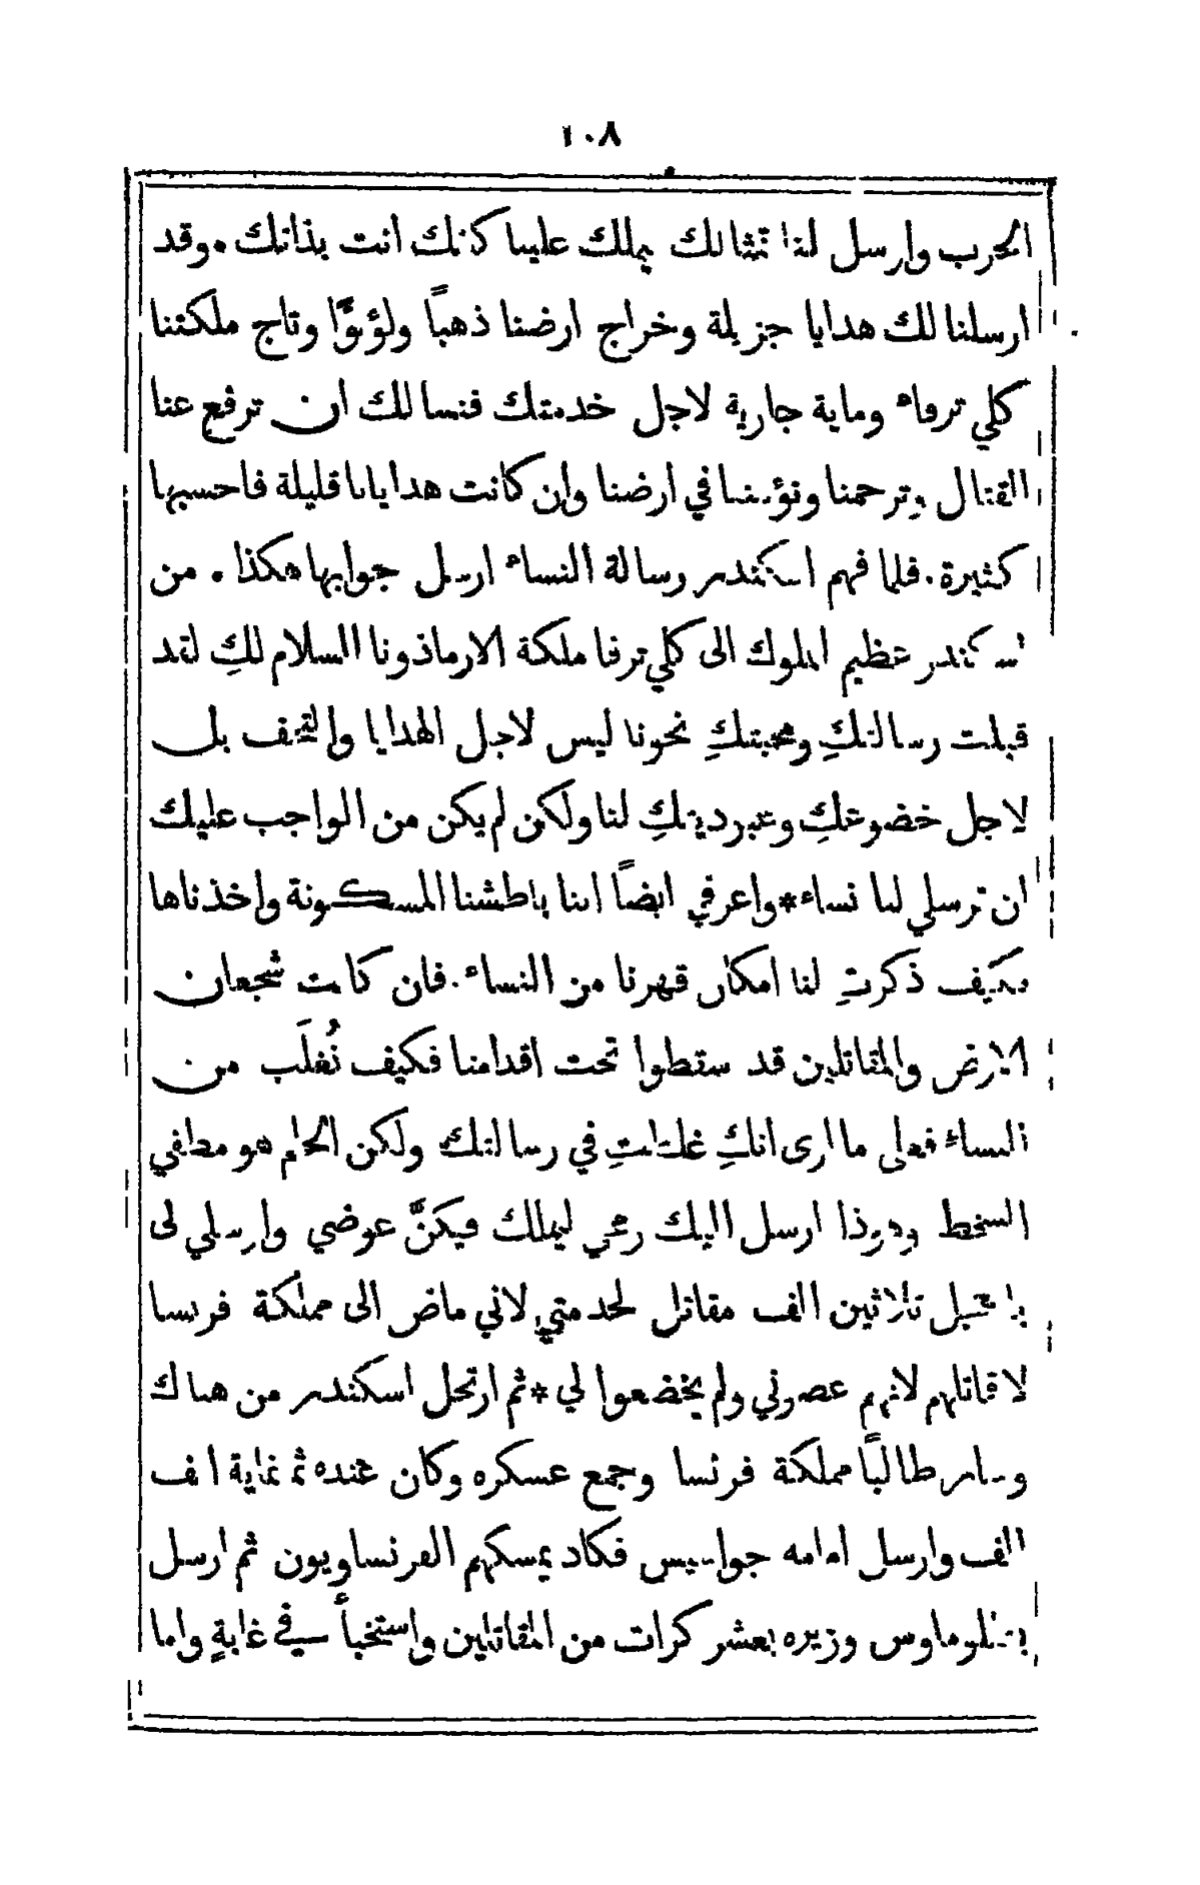 ١٠٨
الحرب وارسل لنا تمثالك يملك علينا كانك انت بذاتك ٠ وقد
ارسلنا لك هدايا جزيلة وخراج ارضنا ذهبًا ولؤلؤًا وتاج ملكتنا
كلي ترفاء وماية جارية لاجل خدمتك فنسالك ان ترفع عنا
القتال وترحمنا ونؤمننا في ارضنا وان كانت هدايانا قليلة فاحسبها
كثيرة . فلما فهم اسكندر رسالة النساء ارسل جوابها هكذا ٠ من
اسكندر عظيم الملوك الى كلي ترفا ملكة الارماذونا السلام لكِ لقد
قبلت رسالتكِ ومحبتكِ نحونا ليس لاجل الهدايا والتحف بل
لاجل خضوعكِ وعبوديتكِ لنا ولكن لم يكن من الواجب عليك
ان ترسلي لنا نساء * واعرفي ايضًا اننا باطشنا المسكونة واخذناها
فكيف ذكرتِ لنا امكان قهرنا من النساء . فان كانت شجعان
الارض والمقاتلين قد سقطوا تحت اقدامنا فكيف نُغلَب من
النساء فعلى ما ارى انكِ غلطتِ في رسالتك ولكن الحلم هو مطفي
السخط وهوذا ارسل اليك رمحي ليملك فيكنَّ عوضي وارسلي لى
ثلاثين الف مقاتل لخدمتي لاني ماض الى مملكة فرنسا
لاقاتلهم لانهم عصوني ولم يخضعوا لي * ثم ارتحل اسكندر من هناك
وسار طالبًا مملكة فرنسا وجمع عسكره وكان عنده ثمنماية الف
الف وارسل امامه جواسيس فكاد يمسكهم الفرنساويون ثم ارسل
بطلوماوس وزيره بعشر كرات من المقاتلين واستخبأ في غابةٍ واما